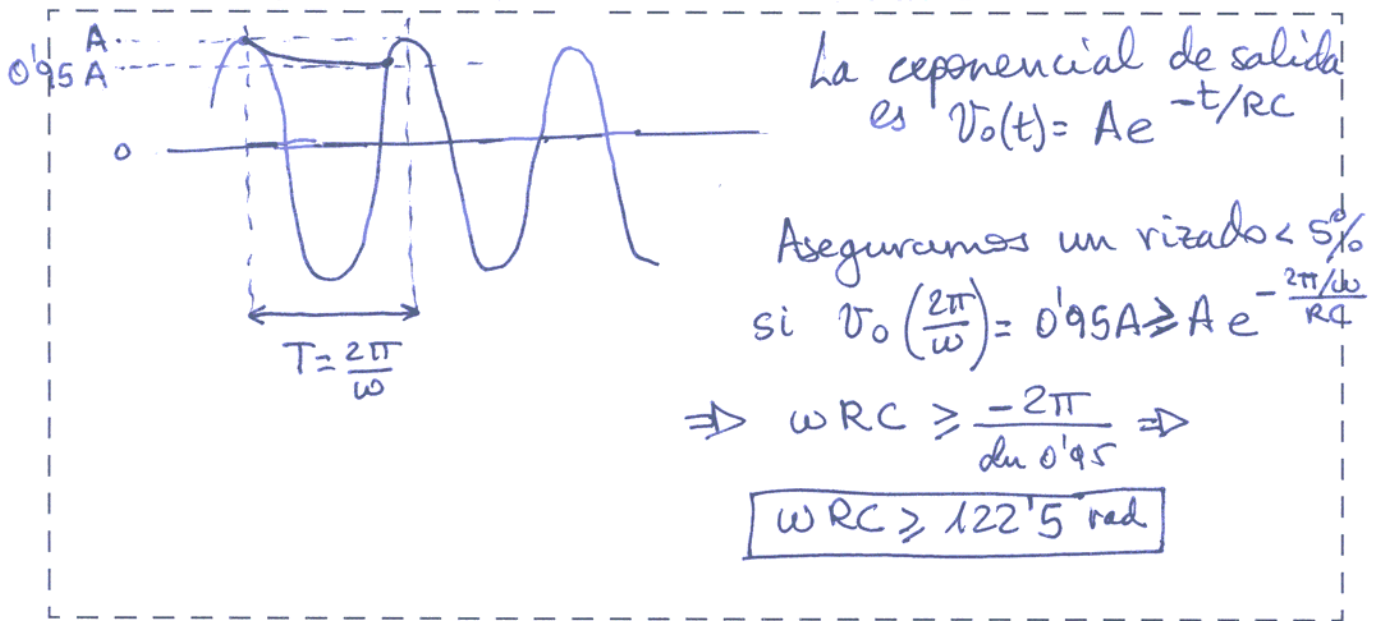 A
0'95 A
0
T = 2π/ω
La exponencial de salida
es v₀(t) = A e^(-t/RC)
Aseguramos un rizado < 5%
si v₀(2π/ω) = 0'95A ≥ A e^(-(2π/ω)/RC)
⇒ ω RC ≥ -2π/ln 0'95 ⇒
ω RC ≥ 122'5 rad